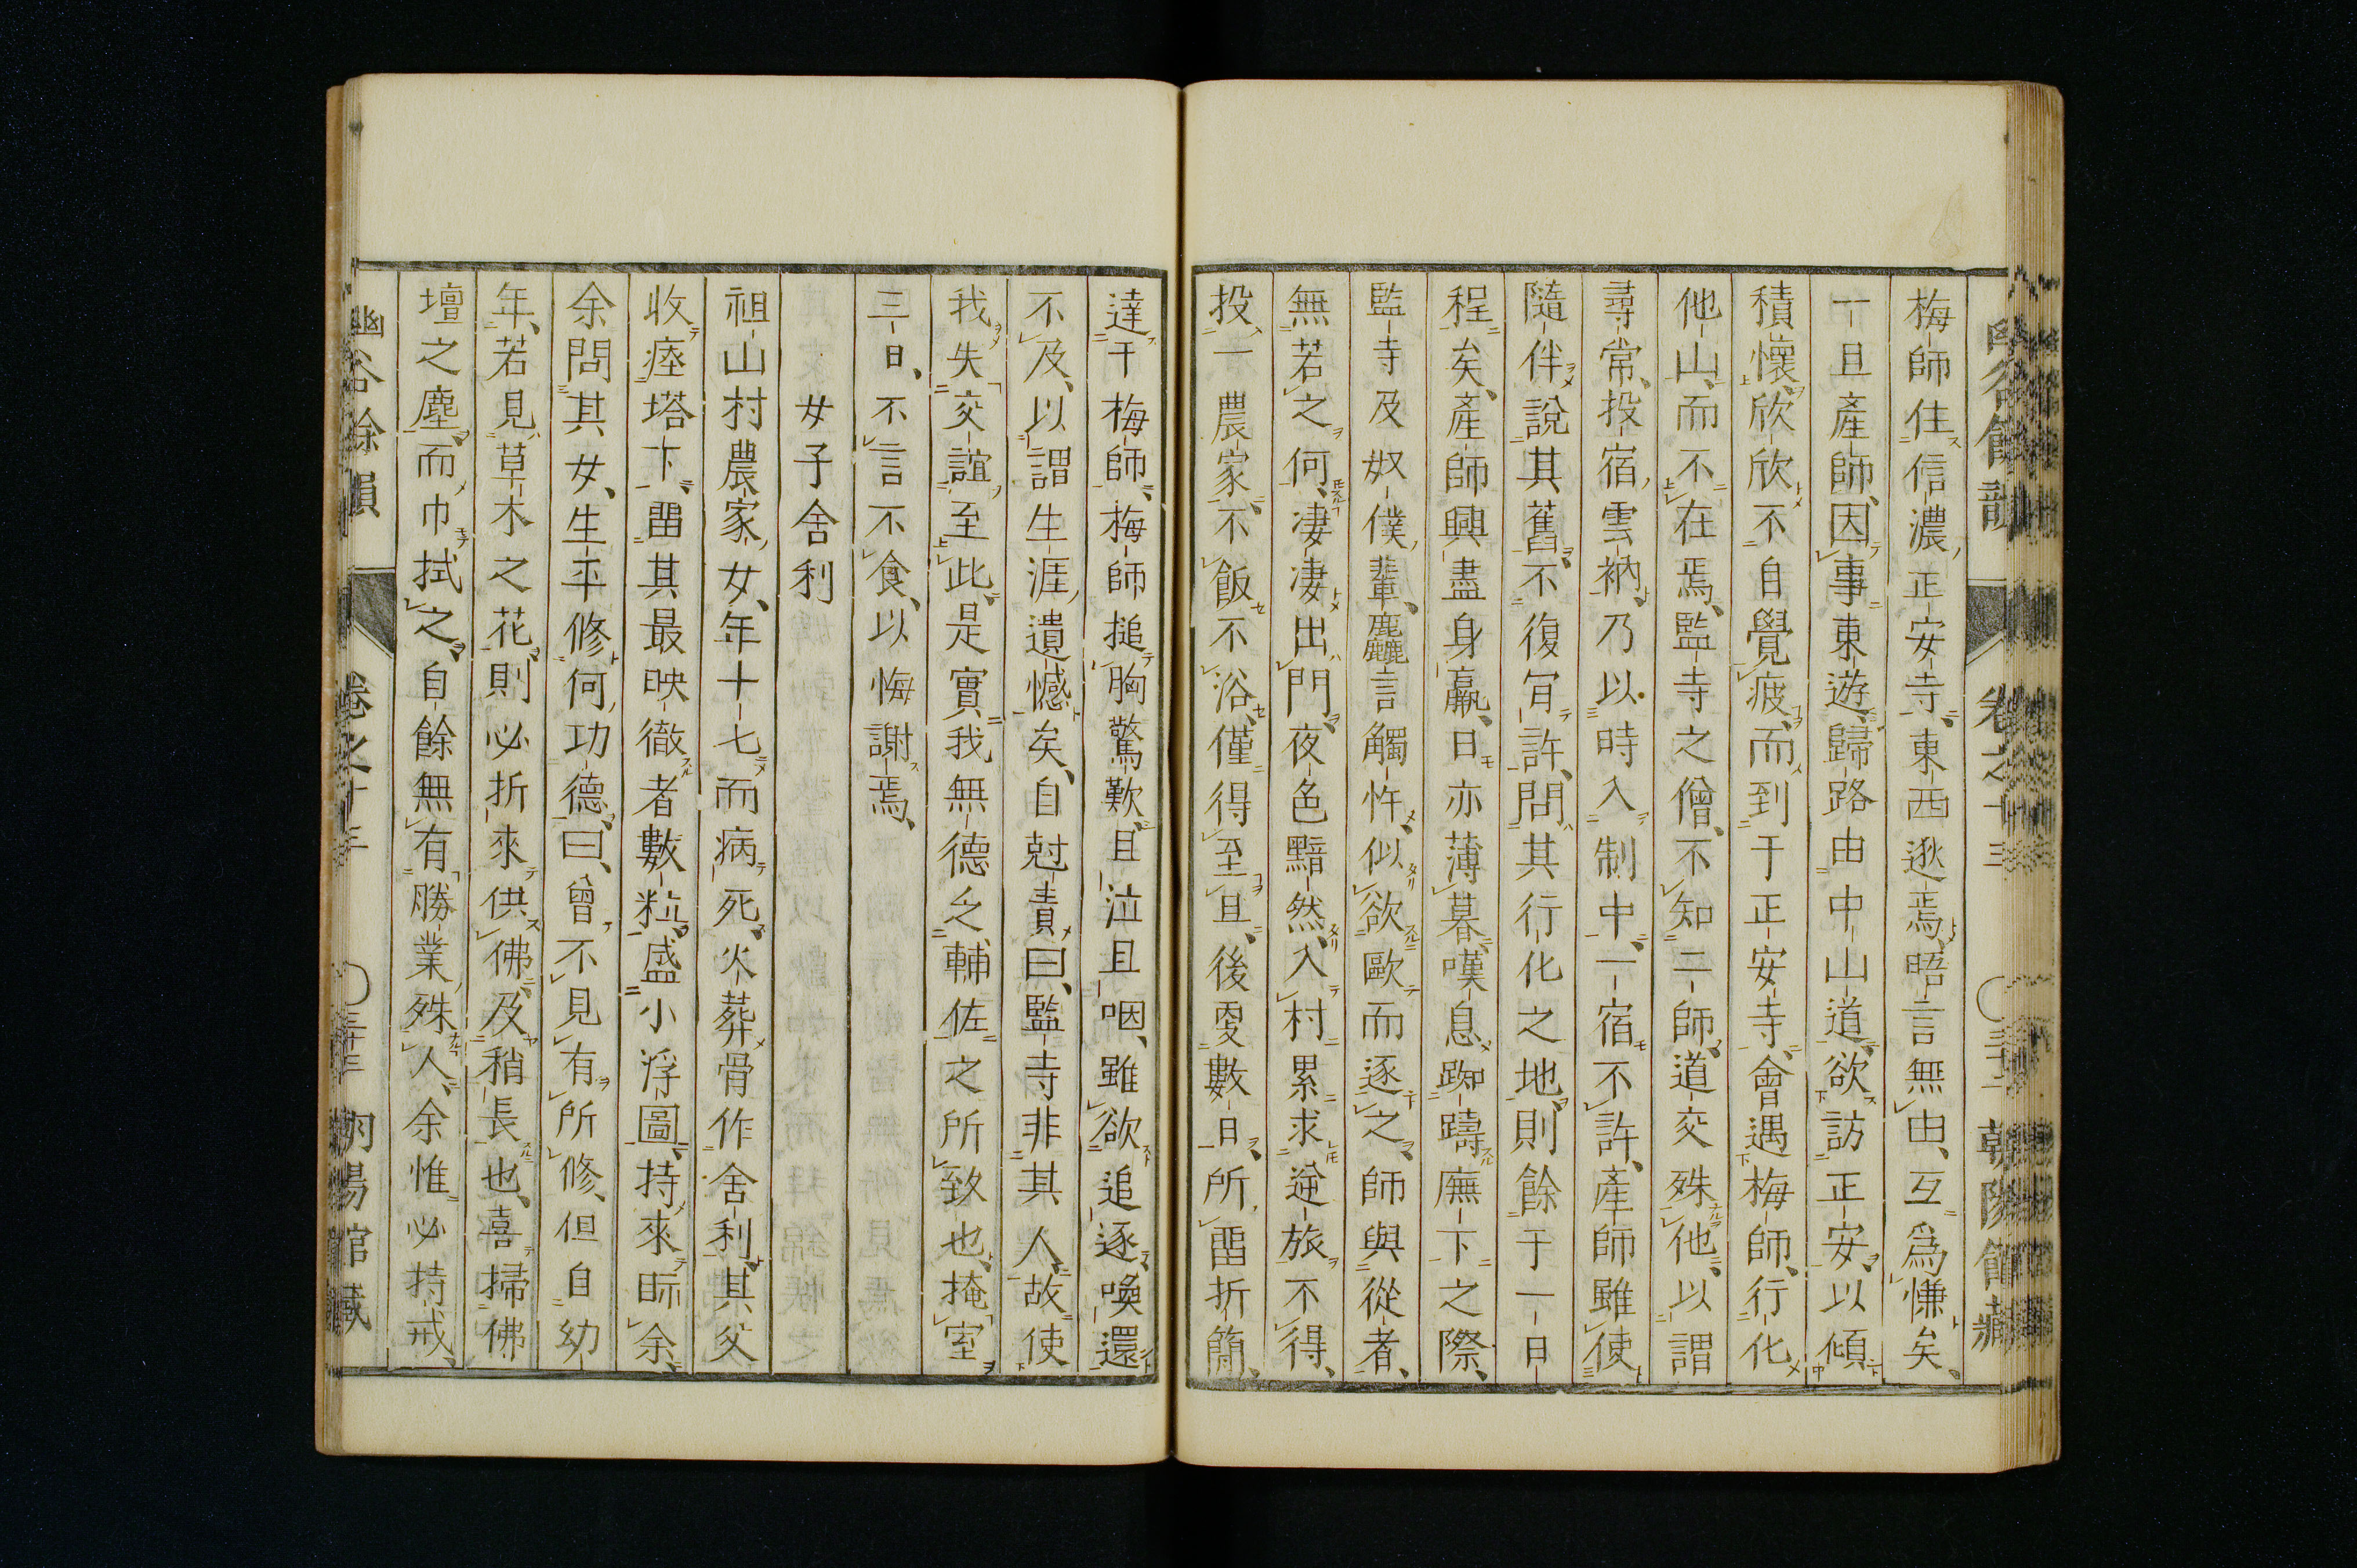 幽谷餘韻 卷之十三 朝陽館藏
梅師住信濃正安寺、東西逖焉、晤言無由、互爲慊矣、
一旦產師、因事東遊、歸路由中山道、欲訪正安、以傾
積懷、欣欣不自覺疲、而到于正安寺、會遇梅師、行化
他山、而不在焉、監寺之僧、不知二師、道交殊他、以謂
尋常、投宿雲衲、乃以時入制中、一宿不許、產師雖使
隨伴說其舊、不復肎許、問其行化之地、則餘于一日
程矣、產師興盡身羸、日亦薄暮、嘆息踟躊廡下之際、
監寺及奴僕輩、麤言觸忤、似欲歐而逐之、師與從者、
無若之何、凄凄出門、夜色黯然、入村累求逆旅不得、
投一農家、不飯不浴、僅得至旦、後叓數日、所畱折簡、
達干梅師、梅師搥胸驚歎、且泣且咽、雖欲追逐喚還
不及、以謂生涯遺憾矣、自尅責曰、監寺非其人、故使
我失交誼、至此、是實我無德之輔佐之所致也、掩室
三日、不言不食、以悔謝焉、
女子舍利
祖山村農家女、年十七而病死、火葬骨作舍利、其父
收瘞塔下、畱其最映徹者數粒、盛小浮圖、持來眎余、
余問其女、生平修何功德、曰、曾不見有所修、但自幼
年、若見草木之花、則必折來供佛、及稍長也、喜掃佛
壇之塵、而巾拭之、自餘無有勝業殊人、余惟必持戒、
幽谷餘韻 卷之十三 朝陽館藏